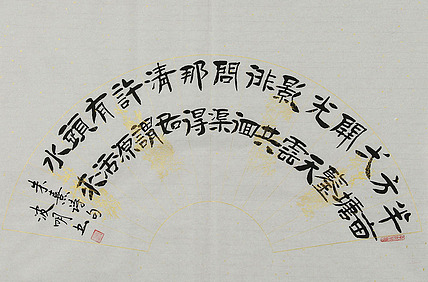 半畝
方塘
一鑑
開天
光雲
影共
徘徊
問渠
那得
清如
許謂
有源
頭活
水來
朱熹詩句
波明书